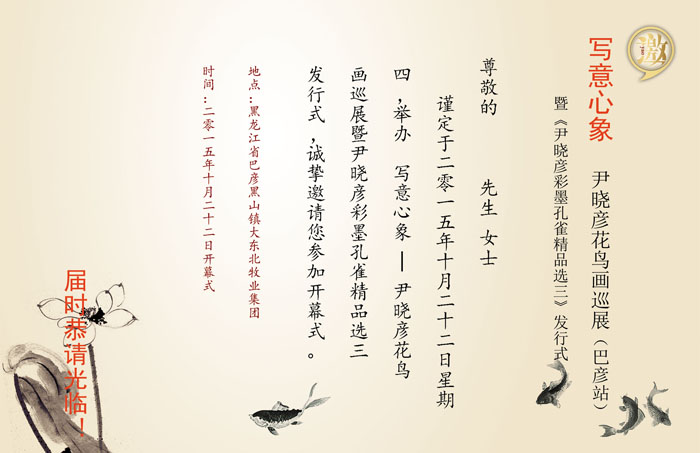 邀
写意心象 尹晓彦花鸟画巡展（巴彦站）
暨《尹晓彦彩墨孔雀精品选三》发行式
尊敬的 先生 女士
谨定于二零一五年十月二十二日星期
四，举办 写意心象 — 尹晓彦花鸟
画巡展暨尹晓彦彩墨孔雀精品选三
发行式，诚挚邀请您参加开幕式。
地点：黑龙江省巴彦黑山镇大东北牧业集团
时间：二零一五年十月二十二日开幕式
届时恭请光临！